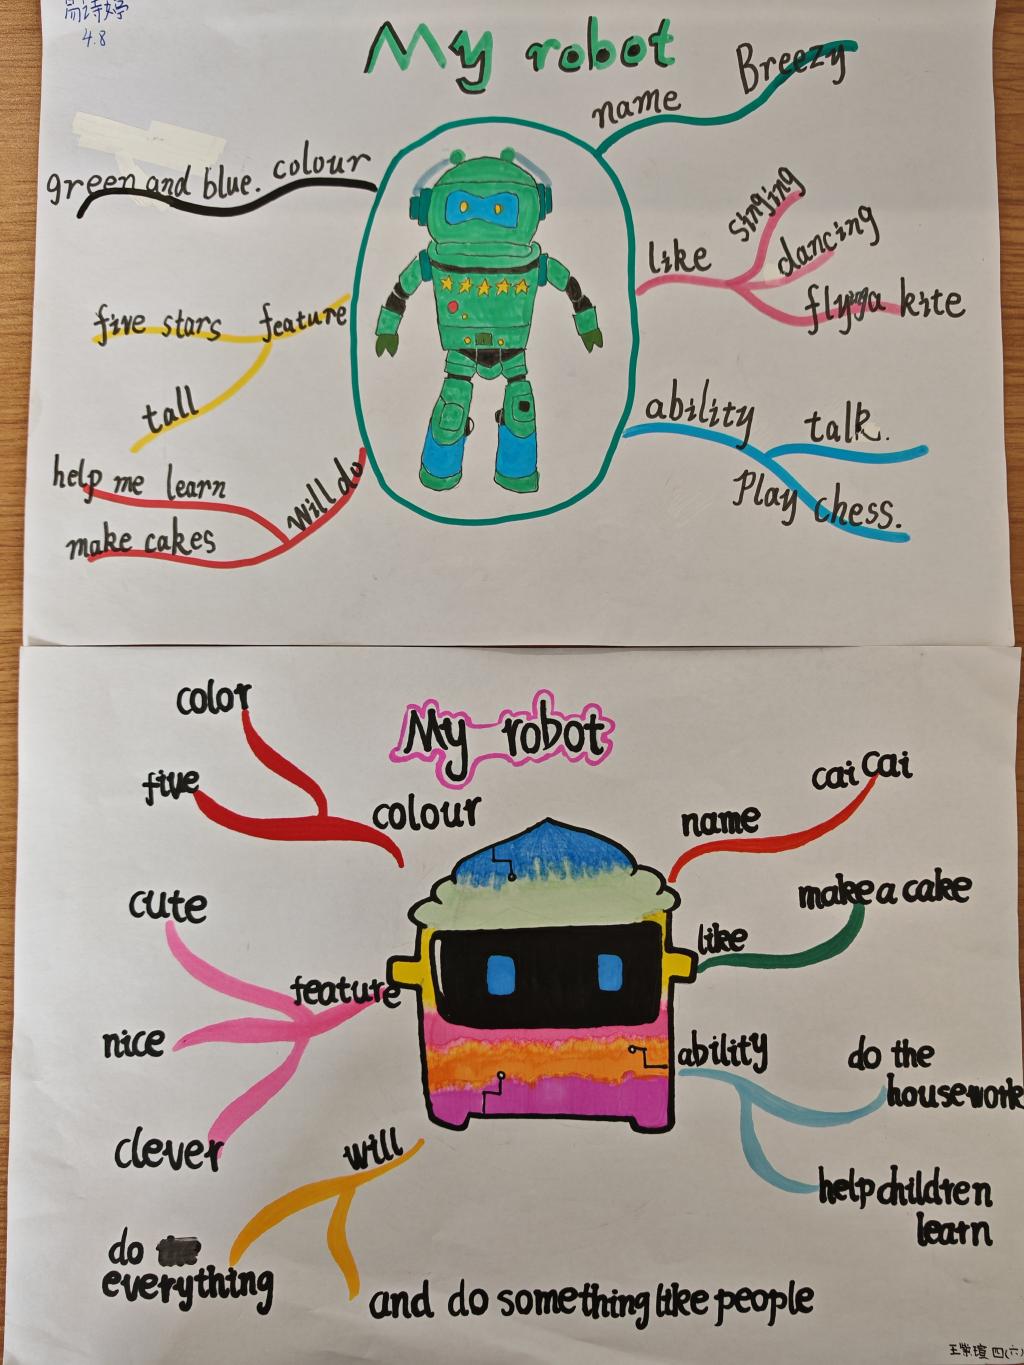 易诗婷
4.8
My robot
name Breezy
green and blue. colour
like
singing
dancing
flying a kite
five stars feature
tall
ability
talk.
Play chess.
help me learn
make cakes
will do
My robot
color
five
colour
name
cai cai
cute
nice
clever
feature
like
make a cake
ability
do the
housework
help children
learn
will
do
everything
and do something like people
王紫瑄 四(六)